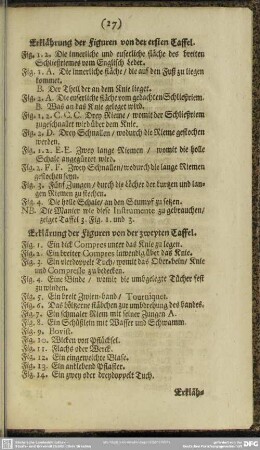 (27)
Erklährung der Figuren von der ersten Taffel.
Fig. 1. 2. Die innerliche und euserliche fläche des breiten
Schließriemes vom Englisch Leder.
Fig. 1. A. Die innerliche fläche / die auf den Fuß zu liegen
kommet.
B. Der Theil der an dem Knie lieget.
Fig. 2. A. Die euserliche fläche vom gedachten Schließriem.
B. Was an das Knie geleget wird.
Fig. 1. 2. C. C. C. Drey Rieme / womit der Schließriem
zugeschnallet wird über dem Knie.
Fig. 2. D. Drey Schnallen / wodurch die Rieme gestochen
werden.
Fig. 1. 2. E. E. Zwey lange Riemen / womit die holle
Schale angegürtet wird.
Fig. 2. F. F. Zwey Schnallen / wodurch die lange Riemen
gestochen seyn.
Fig. 3. Fünf Zungen / durch die löcher der kurzen und lan-
gen Riemen zu stechen.
Fig. 4. Die holle Schale / an den Stumpf zu setzen.
NB. Die Manier wie diese Instrumente zu gebrauchen /
zeiget Taffel 5. Fig. 2. und 3.
Erklärung der Figuren von der zweyten Taffel.
Fig. 1. Ein dick Compres unter das Knie zu legen.
Fig. 2. Ein breiter Compres inwendig über das Knie.
Fig. 3. Ein vierdoppelt Tuch / womit das Oberbeim Knie
und Compresse zu bedecken.
Fig. 4. Eine Binde / womit die umbgelegte Tücher fest
zu winden.
Fig. 5. Ein breit Zwien-band / Tourniquet.
Fig. 6. Das höltzerne stäbchen zur umbdrehung des bandes.
Fig. 7. Ein schmaler Riem mit seiner Zungen A.
Fig. 8. Ein Schüßlein mit Wasser und Schwamm.
Fig. 9. Bovist.
Fig. 10. Wicken von Pflücksel.
Fig. 11. Flachs oder Werck.
Fig. 12. Ein eingeweichte Blase.
Fig. 13. Ein anklebend Pflaster.
Fig. 14. Ein zwey oder dreydoppelt Tuch.
Erkläh-